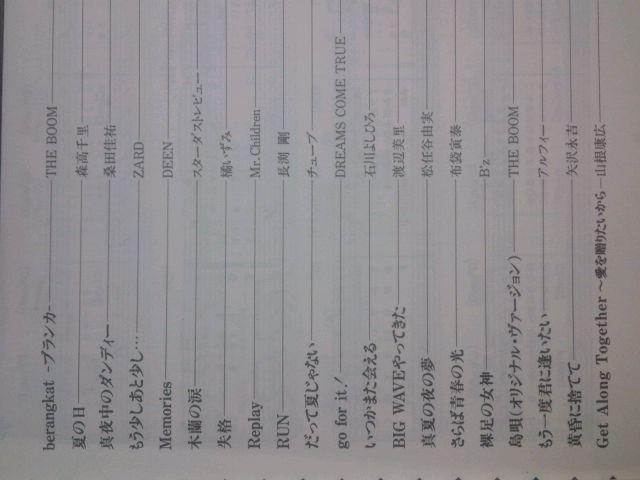 berangkat -ブランカ- THE BOOM
夏の日 森高千里
真夜中のダンディー 桑田佳祐
もう少しあと少し… ZARD
Memories DEEN
木蘭の涙 スターダストレビュー
失格 橘いずみ
Replay Mr. Children
RUN 長渕 剛
だって夏じゃない チューブ
go for it! DREAMS COME TRUE
いつかまた会える 石川よしひろ
BIG WAVEやってきた 渡辺美里
真夏の夜の夢 松任谷由実
さらば青春の光 布袋寅泰
裸足の女神 B'z
島唄(オリジナル・ヴァージョン) THE BOOM
もう一度君に逢いたい アルフィー
黄昏に捨てて 矢沢永吉
Get Along Together 〜愛を贈りたいから 山根康広